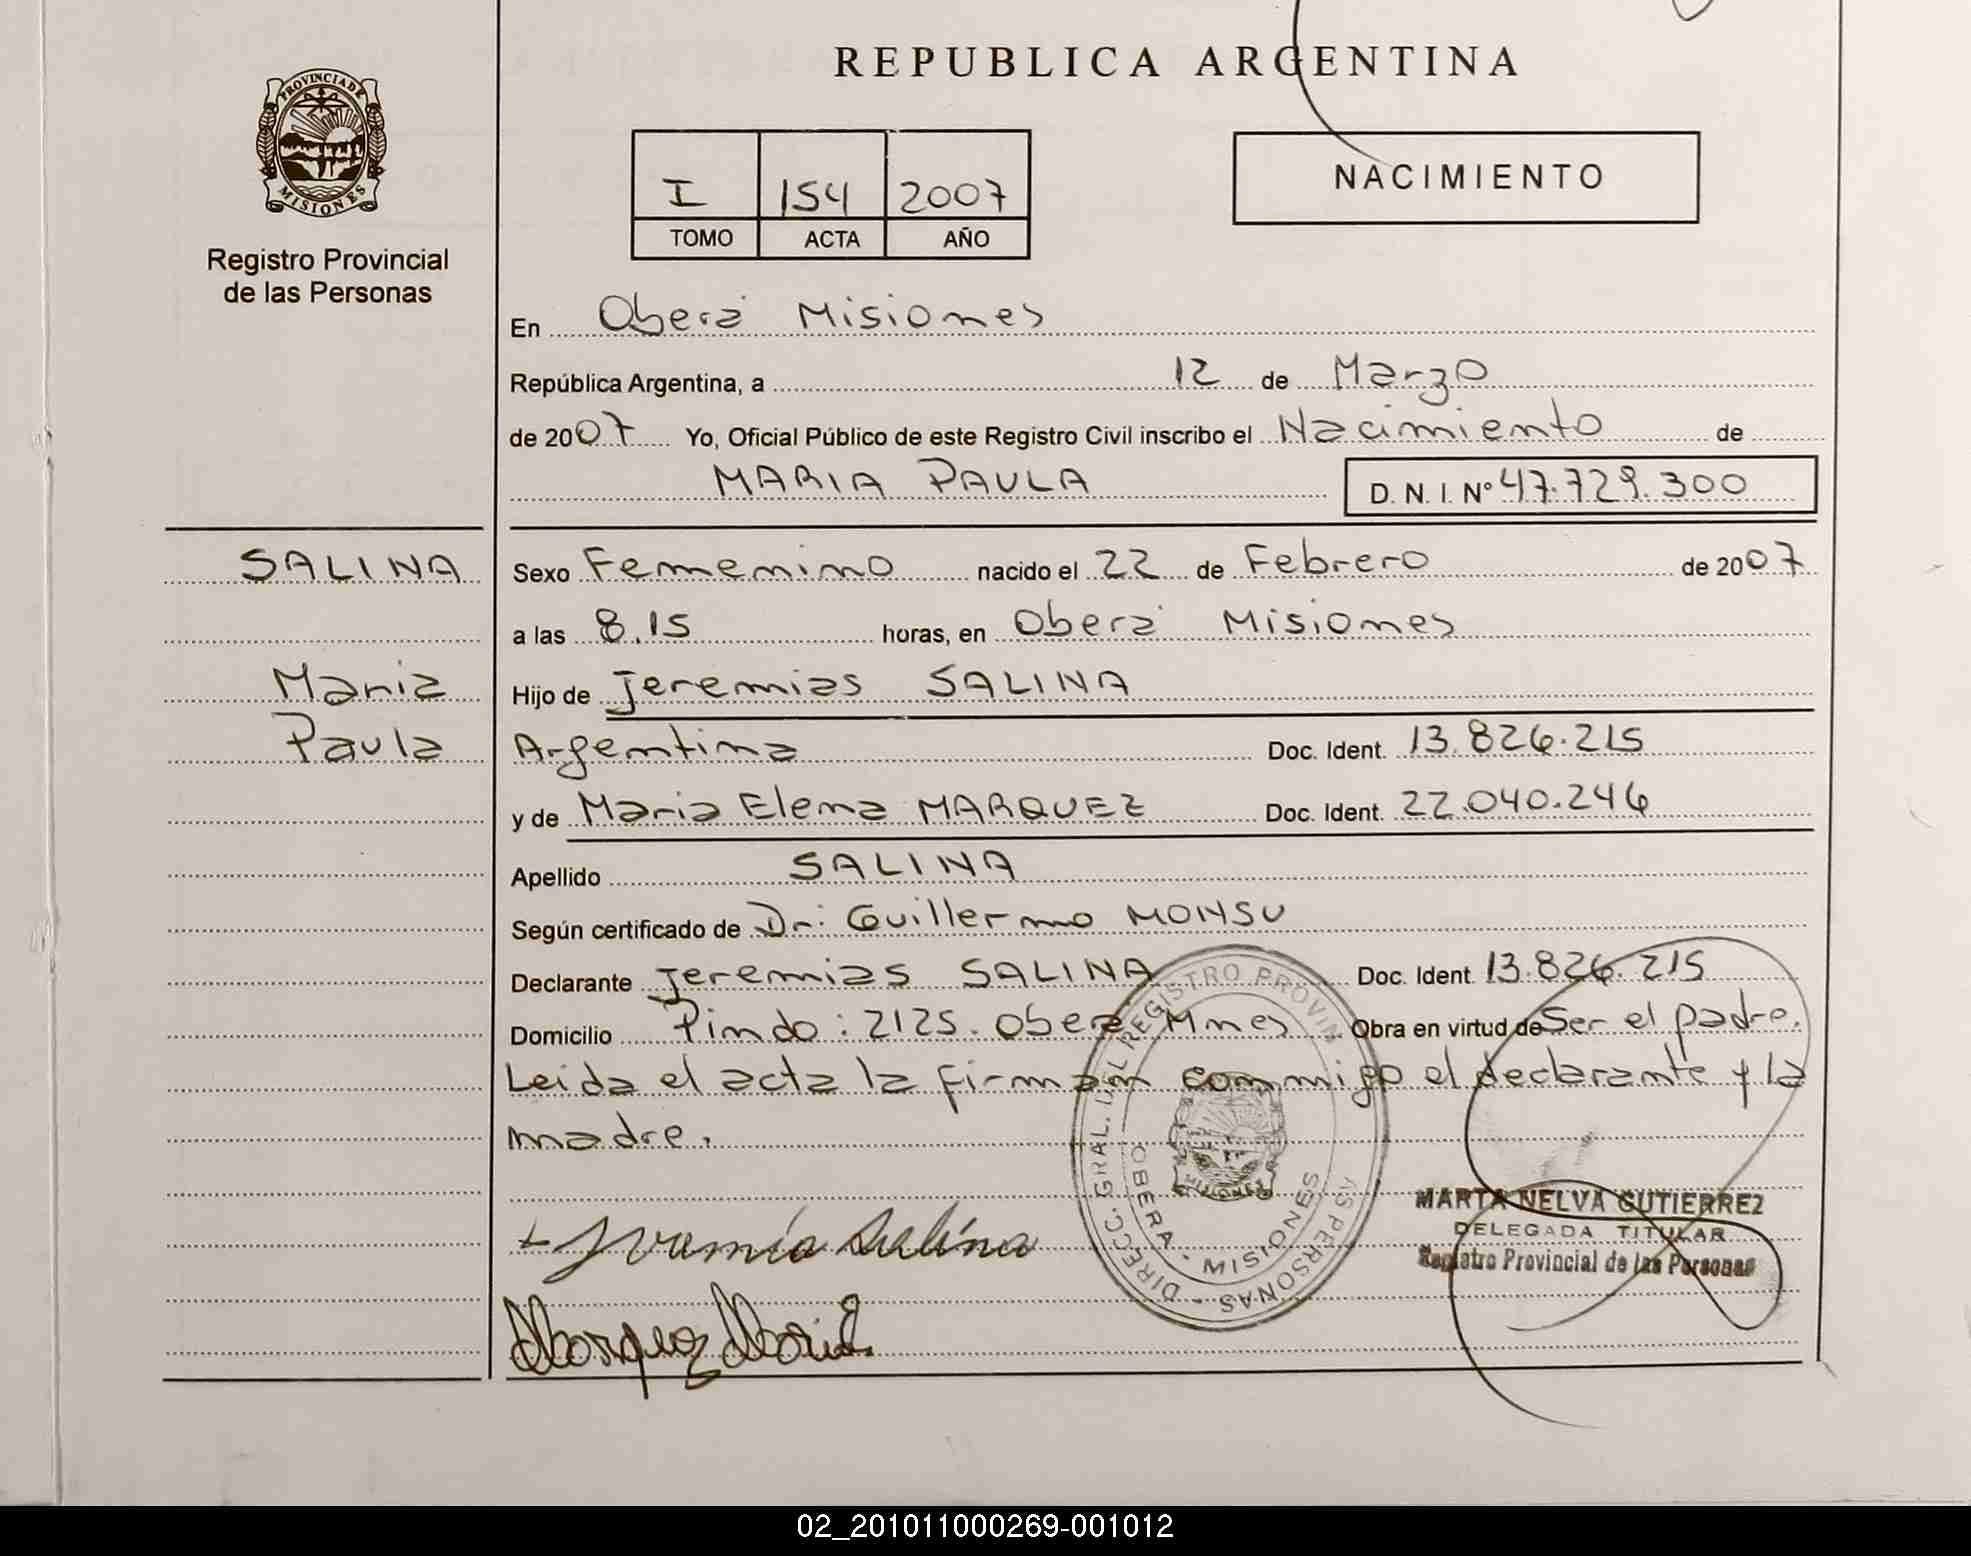 REPUBLICA ARGENTINA
PROVINCIA DE
MISIONES
Registro Provincial
de las Personas
I 154 2007
TOMO ACTA AÑO
NACIMIENTO
En Oberá Misiones
República Argentina, a 12 de Marzo
de 2007 Yo, Oficial Público de este Registro Civil inscribo el Nacimiento de
MARIA PAULA D. N. I. Nº 47.729.300
SALINA
Maria
Paula
Sexo Femenino nacido el 22 de Febrero de 2007
a las 8.15 horas, en Oberá Misiones
Hijo de Jeremias SALINA
Argentina Doc. Ident. 13.826.215
y de Maria Elena MARQUEZ Doc. Ident. 22.040.246
Apellido SALINA
Según certificado de Dr: Guillermo MONSU
Declarante Jeremias SALINA Doc. Ident. 13.826.215
Domicilio Pindo: 2125. Oberá Mnes Obra en virtud de Ser el padre.
Leida el acta la firman conmigo el declarante y la
madre.
DIRECC. GRAL. DEL REGISTRO PROVIN
AS PERSONAS
OBERA - MISIONES
MISIONES
MARTA NELVA GUTIERREZ
DELEGADA TITULAR
Registro Provincial de las Personas
+ Jeremía Salína
Marquez Maria
02_201011000269-001012